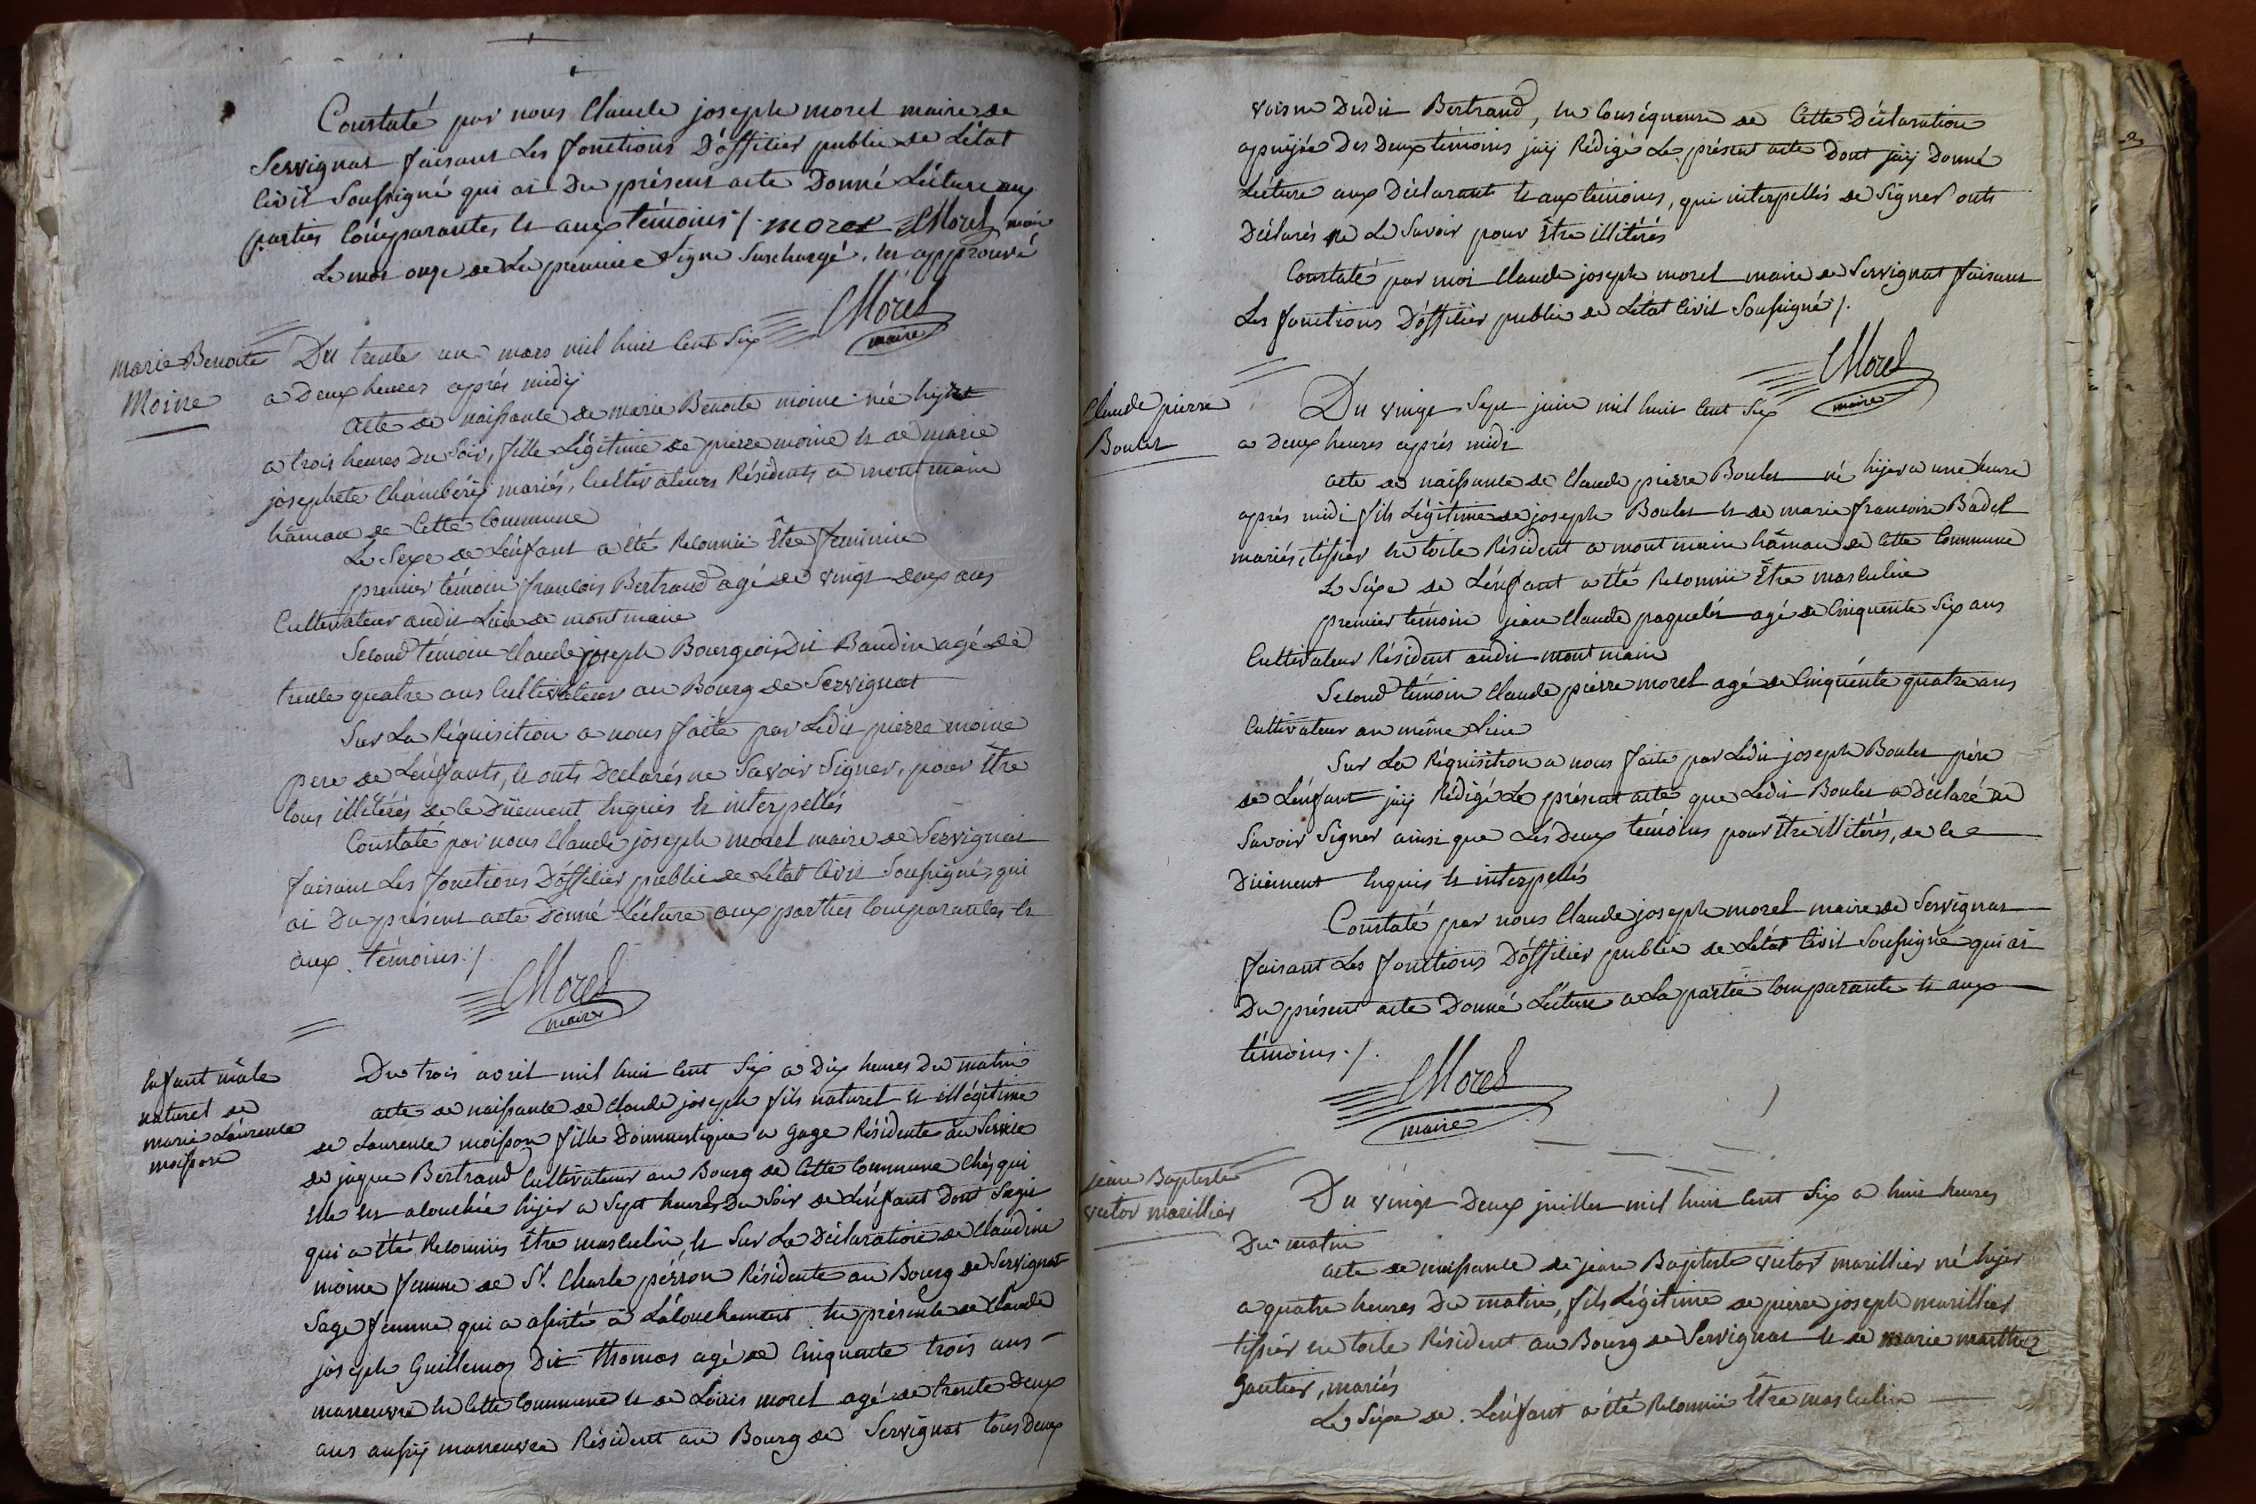 Constaté par nous Claude joseph morel maire de
Servignat faisant Les fonctions D'offitier public de L'état
Civil Soussigné qui ai Du présent acte Donné Lecture aux
parties Comparantes et aux témoins ·/· morel CMorel maire
Le mot onze de La premiere Ligne Surchargé, est approuvé
CMorel
maire
marie Benoite
Moine
Du trente un mars mil huit Cent Six
a Deux heures après midÿ
acte de naissance de marie Benoite moine née hyer
a trois heures Du Soir, fille Légitime de pierre moine et de marie
josephete Chambérÿ mariés, Cultivateurs Résidents a mont main
hâmau de Cette Commune
Le Sexe de L'énfant a été Reconnu Être feminin
premier témoin françois Bertrand agé de vingt deux ans
Cultivateur audit Lieu de mont main
Second témoin Claude joseph Bourgeois Dit Baudin agé de
trente quatre ans Cultivateur au Bourg de Servignat
Sur La Réquisition a nous faite par Ledit pierre moine
pere de L'énfants, et onts Declarés ne Savoir Signer, pour Être
tous illitérés de ce Düement Enquis Et interpellés
Constaté par nous Claude joseph morel maire de Servignat
faisant Les fonctions D'offitier public de L'état Civil Soussigné, qui
ai Du présent acte Donné Lecture aux parties Comparantes et
aux témoins ·/·
CMorel
maire
Enfant mâle
naturel de
marie Laurence
moisson
Du trois avril mil huit Cent Six a Dix heures Du matin
acte de naissance de Claude joseph fils naturel et illégitime
de Laurence moisson fille Dommestique a gage Résidente au Service
de jaque Bertrand Cultivateur au Bourg de Cette Commune Chés qui
Elle est acouchée hijer a Sept heures Du Soir de L'énfant Dont S'agit
qui a été Reconnus Être masculin, et Sur La Déclaration de Claudine
moine femme de St. Charle pérron Résidente au Bourg de Servignat
Sage femme qui a assisté a L'acouchement En présence de Claude
joseph Guillemoz Dit thomas agé de Cinquante trois ans
maneuvre En Cette Commune et de Loüis morel agé de trente Deux
ans aussÿ maneuvre Résident au Bourg de Servignat tous Deux
voisin Dudit Bertrand, En Conséquence de Cette Déclaration
apuÿée Des Deux témoins jaÿ Rédigé Le présent acte Dont jaÿ Donné
Lecture aux Déclarants et aux témoins, qui interpellés de Signer onts
Déclarés ne Le Savoir pour Être illitérés
Constaté par moi Claude joseph morel maire de Servignat faisant
Les fonctions D'offitier public de L'état Civil Soussigné ·/·
CMorel
maire
Claude pierre
Boulet
Du vingt Sept juin mil huit Cent Six
a Deux heures après midi
acte de naissance de Claude pierre Boulet né hijer a une heure
après midi fils Légitime de joseph Boulet et de marie francoise Badel
mariés, tissier En toile Résident a mont main hâmau de Cette Commune
Le Sexe de L'énfant a été Reconnu Être masculin
premier témoin jean Claude paquelet agé de Cinquente Six ans
Cultivateur Résident audit mont main
Second témoin Claude pierre morel agé de Cinquénte quatre ans
Cultivateur au même Lieu
Sur La Réquisition a nous faite par Ledit joseph Boulet père
de L'énfant jaÿ Rédigé Le présent acte que Ledit Boulet a Déclaré ne
Savoir Signer ainsi que Les Deux témoins pour Être illitérés, de ce
Düement Enquis Et interpellés
Constaté par nous Claude joseph morel maire de Servignat
faisant Les fonctions D'offitier public de L'état Civil Soussigné qui ai
Du présent acte Donné Lecture a La partie Comparante et aux
témoins ·/·
CMorel
maire
jean Baptiste
victor marillier
Du vingt Deux juillet mil huit Cent Six a huit heures
Du matin
acte de naissance de jean Baptiste victor marillier né hijer
a quatre heures Du matin, fils Légitime de pierre joseph marillier
tissier En toile Résident au Bourg de Servignat et de marie marthe
gautier, mariés
Le Sexe de L'énfant a été Reconnu Être masculin